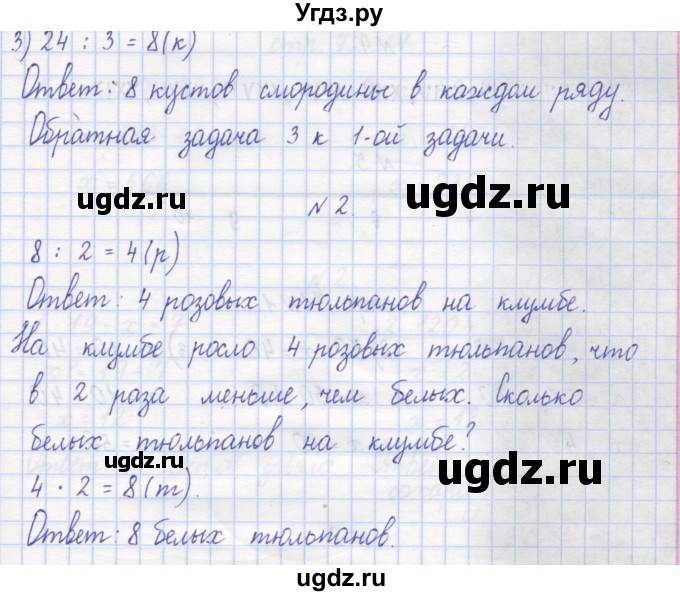 Угдз.ру
3) 24 : 3 = 8 (к)
Ответ: 8 кустов смородины в каждом ряду.
Обратная задача 3 к 1-ой задачи.
ugdz.ru ugdz.ru
№ 2.
8 : 2 = 4 (р)
Ответ: 4 розовых тюльпанов на клумбе.
На клумбе росло 4 розовых тюльпанов, что
в 2 раза меньше, чем белых. Сколько
белых тюльпанов на клумбе?
ugdz.ru ugdz.ru
4 · 2 = 8 (т).
Ответ: 8 белых тюльпанов.
ugdz.ru